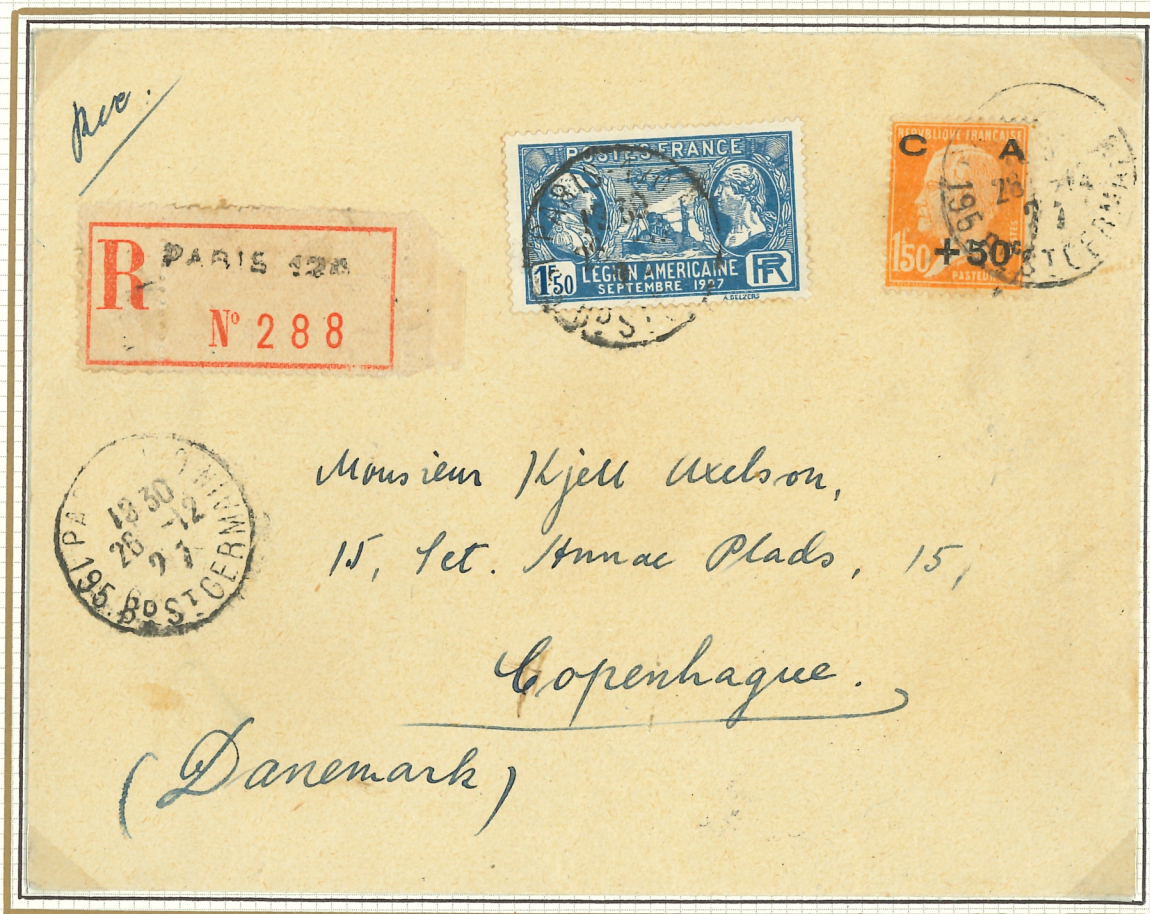 Rec.
R PARIS
N° 288
POSTES FRANCE
1F50 LEGION AMERICAINE RF
SEPTEMBRE 1927
A. DELZERS
REPUBLIQUE FRANÇAISE
C A
1F50 +50c
POSTES
PASTEUR
28
27
195 Bᴰ Sᵀ GERMAIN
18 30
28 -12
27
195. Bᴰ Sᵀ GERMAIN
Monsieur Kjell Axelson,
15, Sct. Annae Plads, 15,
Copenhague.
(Danemark)